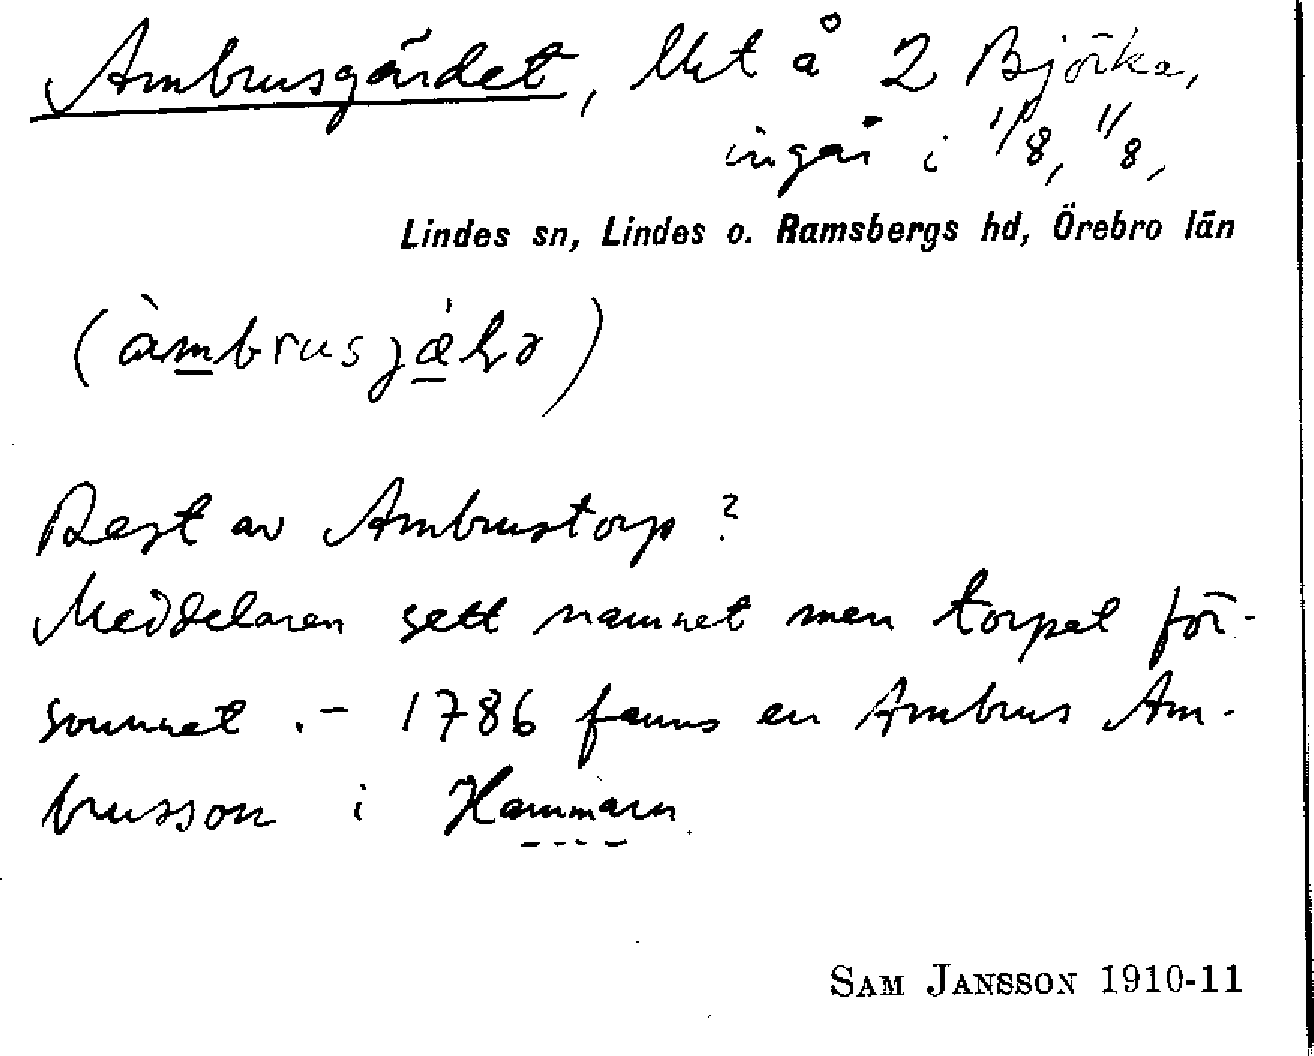 Ambrusgärdet, lllet å 2 Björka,
ingår i 1/8, 1/8,
Lindes sn, Lindes o. Ramsbergs hd, Örebro län
(àmbrusjæ̀ḷə)
Rest av Ambrustorp?
Meddelaren sett namnet men torpet för-
svunnet. - 1786 fanns en Ambrus Am-
brusson i Hammarn
SAM JANSSON 1910-11